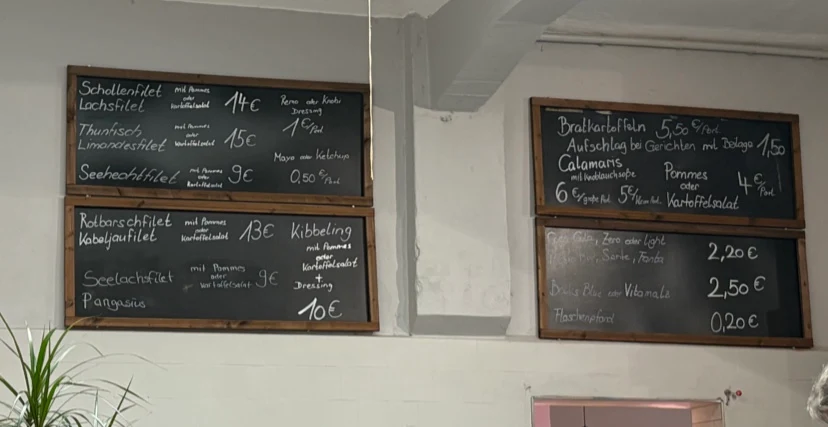 Schollenfilet mit Pommes
Lachsfilet oder Kartoffelsalat 14€
Remo oder Knobi
Dressing
1€/Port.
Thunfisch mit Pommes
Limandesfilet oder Kartoffelsalat 15€
Mayo oder Ketchup
0,50€/Port.
Seehechtfilet mit Pommes oder Kartoffelsalat 9€
Rotbarschfilet mit Pommes
Kabeljaufilet oder Kartoffelsalat 13€
Kibbeling
mit Pommes
oder
Kartoffelsalat
+
Dressing
10€
Seelachsfilet mit Pommes oder Kartoffelsalat 9€
Pangasius
Bratkartoffeln 5,50€/Port.
Aufschlag bei Gerichten mit Beilage 1,50
Calamaris
mit Knoblauchsoße
6€/große Port. 5€/kleine Port.
Pommes
oder
Kartoffelsalat
4€/Port.
Zero oder Light
Fanta 2,20€
Blue oder Vitamalz 2,50€
Flaschenpfand 0,20€